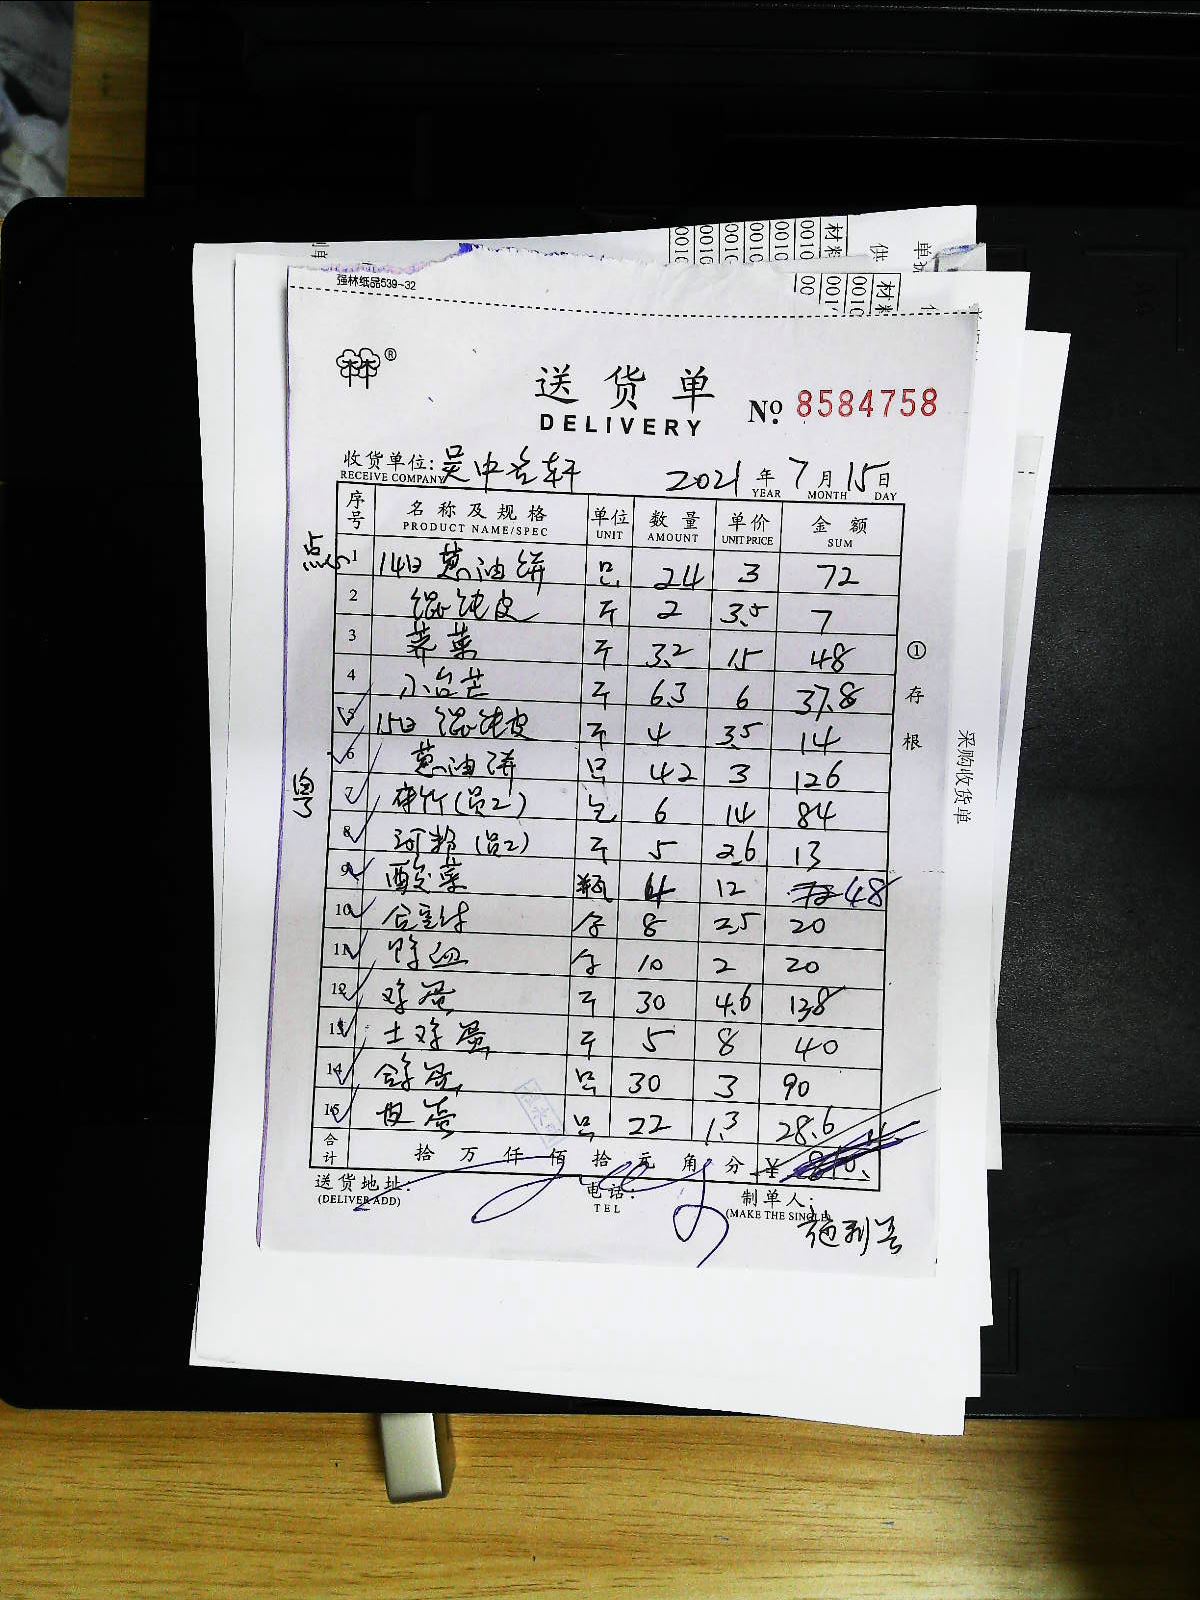 强林纸品539-32
®
送货单
DELIVERY
No. 8584758
收货单位: 吴中名轩 2021年7月15日
RECEIVE COMPANY YEAR MONTH DAY
序号 名称及规格 单位 数量 单价 金额
PRODUCT NAME/SPEC UNIT AMOUNT UNIT PRICE SUM
点心 1 14日葱油饼 只 24 3 72
2 馄饨皮 斤 2 3.5 7
3 荠菜 斤 3.2 15 48
4 小台芒 斤 6.3 6 37.8
5 15日馄饨皮 斤 4 3.5 14
6 葱油饼 只 42 3 126
7 (员工) 包 6 14 84
8 河粉(员工) 斤 5 2.6 13
9 酸菜 瓶 4 12 48
10 8 2.5 20
11 10 2 20
12 鸡蛋 斤 30 4.6 138
13 土鸡蛋 斤 5 8 40
14 只 30 3 90
15 皮蛋 只 22 1.3 28.6
合计 拾万仟佰拾元角分 ¥
送货地址: 电话: 制单人:
(DELIVER ADD) TEL (MAKE THE SINGLE)
①存根
采购收货单
材料
供
单
0010
0010
0010
0010
材料
0010